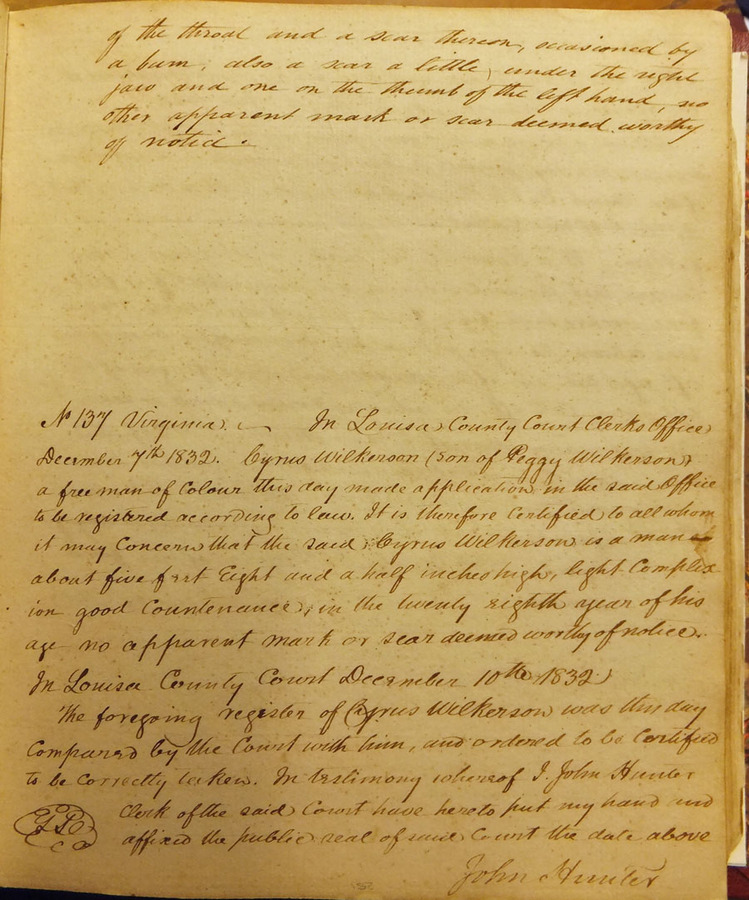 of the throat and a scar thereon, occasioned by
a burn; also a scar a little under the right
jaw and one on the thumb of the left hand, no
other apparent mark or scar deemed worthy
of notice.
No 137 Virginia. In Louisa County Court Clerks Office
December 7th 1832. Cyrus Wilkerson (son of Peggy Wilkerson)
a free man of Colour this day made application in the said Office
to be registered according to law. It is therefore Certified to all whom
it may Concern that the said Cyrus Wilkerson is a man
about five feet Eight and a half inches high, light Complex
ion good Countenance, in the twenty eighth year of his
age no apparent mark or scar deemed worthy of notice.
In Louisa County Court December 10th 1832
The foregoing register of Cyrus Wilkerson was this day
Compared by the Court with him, and ordered to be Certified
to be Correctly taken. In testimony whereof I. John Hunter
Clerk of the said Court have hereto put my hand and
affixed the public seal of said Court the date above
John Hunter